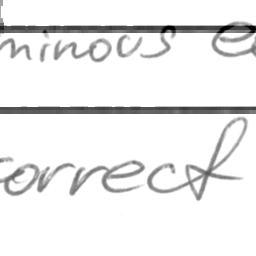 minous e
correct